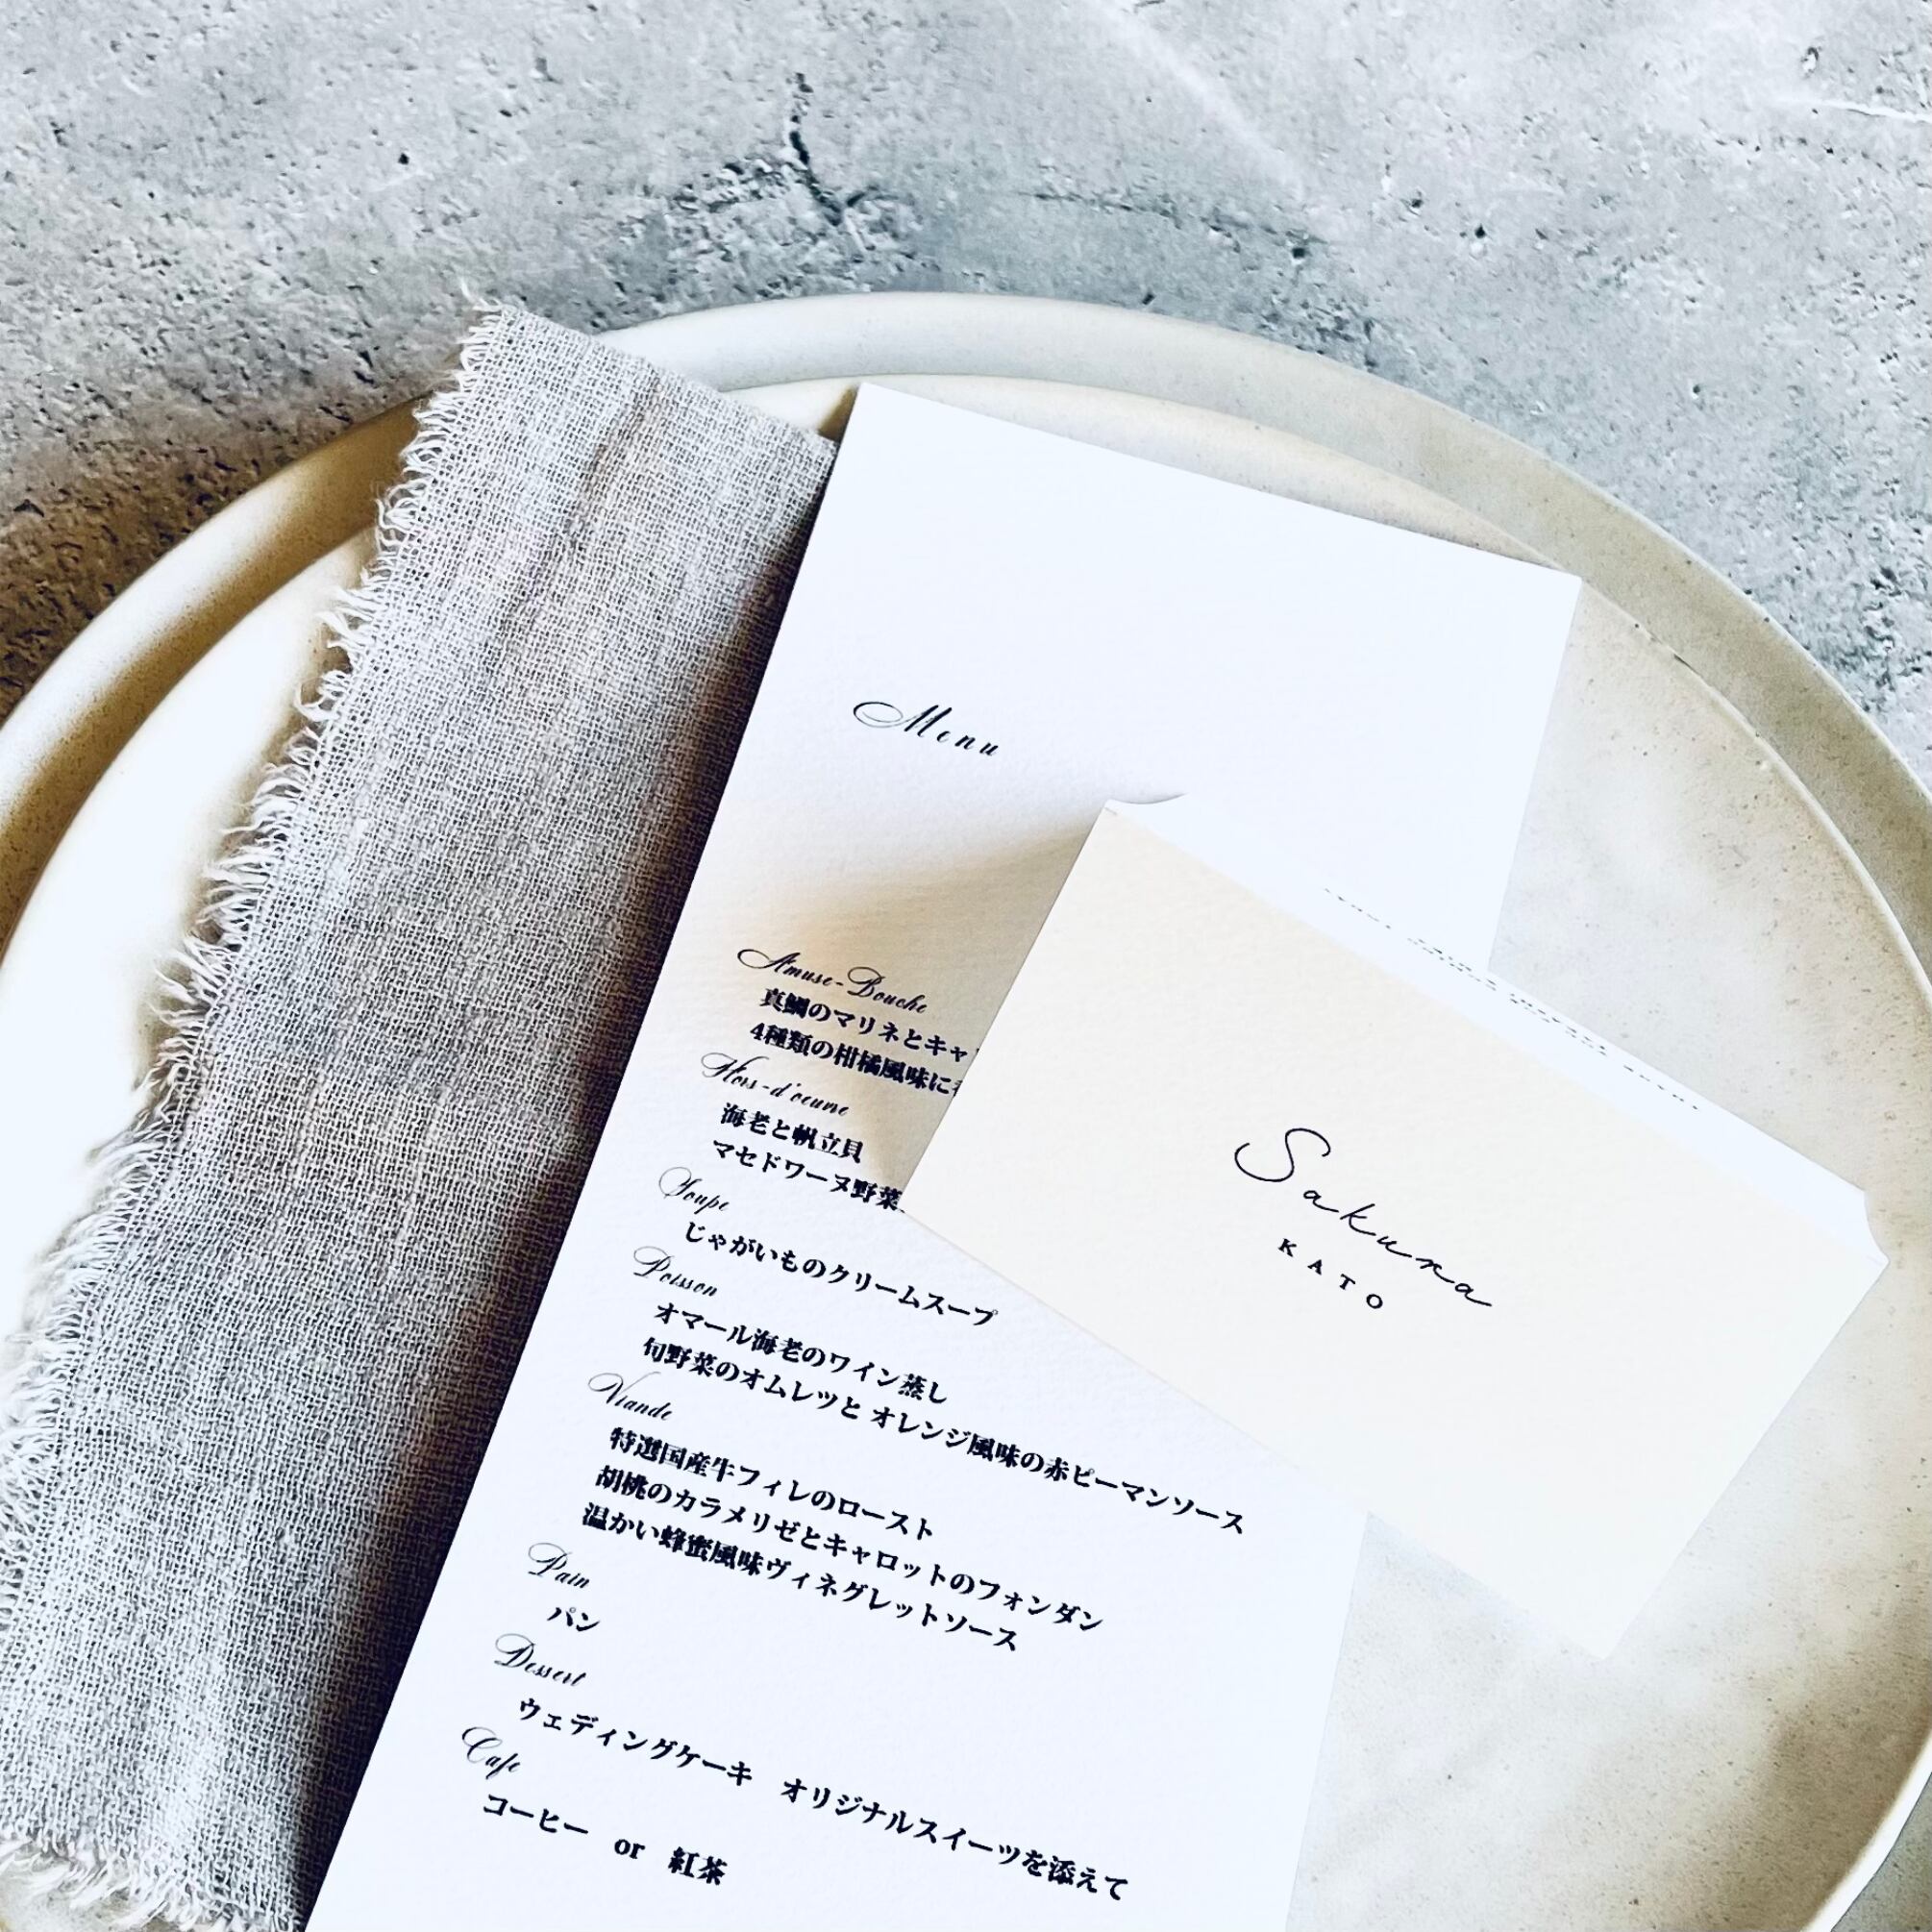 Menu
Amuse-Bouche
真鯛のマリネとキャ
4種類の柑橘風味に
Hors-d'oeuvre
海老と帆立貝
マセドワーヌ野菜
Soupe
じゃがいものクリームスープ
Poisson
オマール海老のワイン蒸し
旬野菜のオムレツと オレンジ風味の赤ピーマンソース
Viande
特選国産牛フィレのロースト
胡桃のカラメリゼとキャロットのフォンダン
温かい蜂蜜風味ヴィネグレットソース
Pain
パン
Dessert
ウェディングケーキ オリジナルスイーツを添えて
Cafe
コーヒー or 紅茶
Sakura
KATO